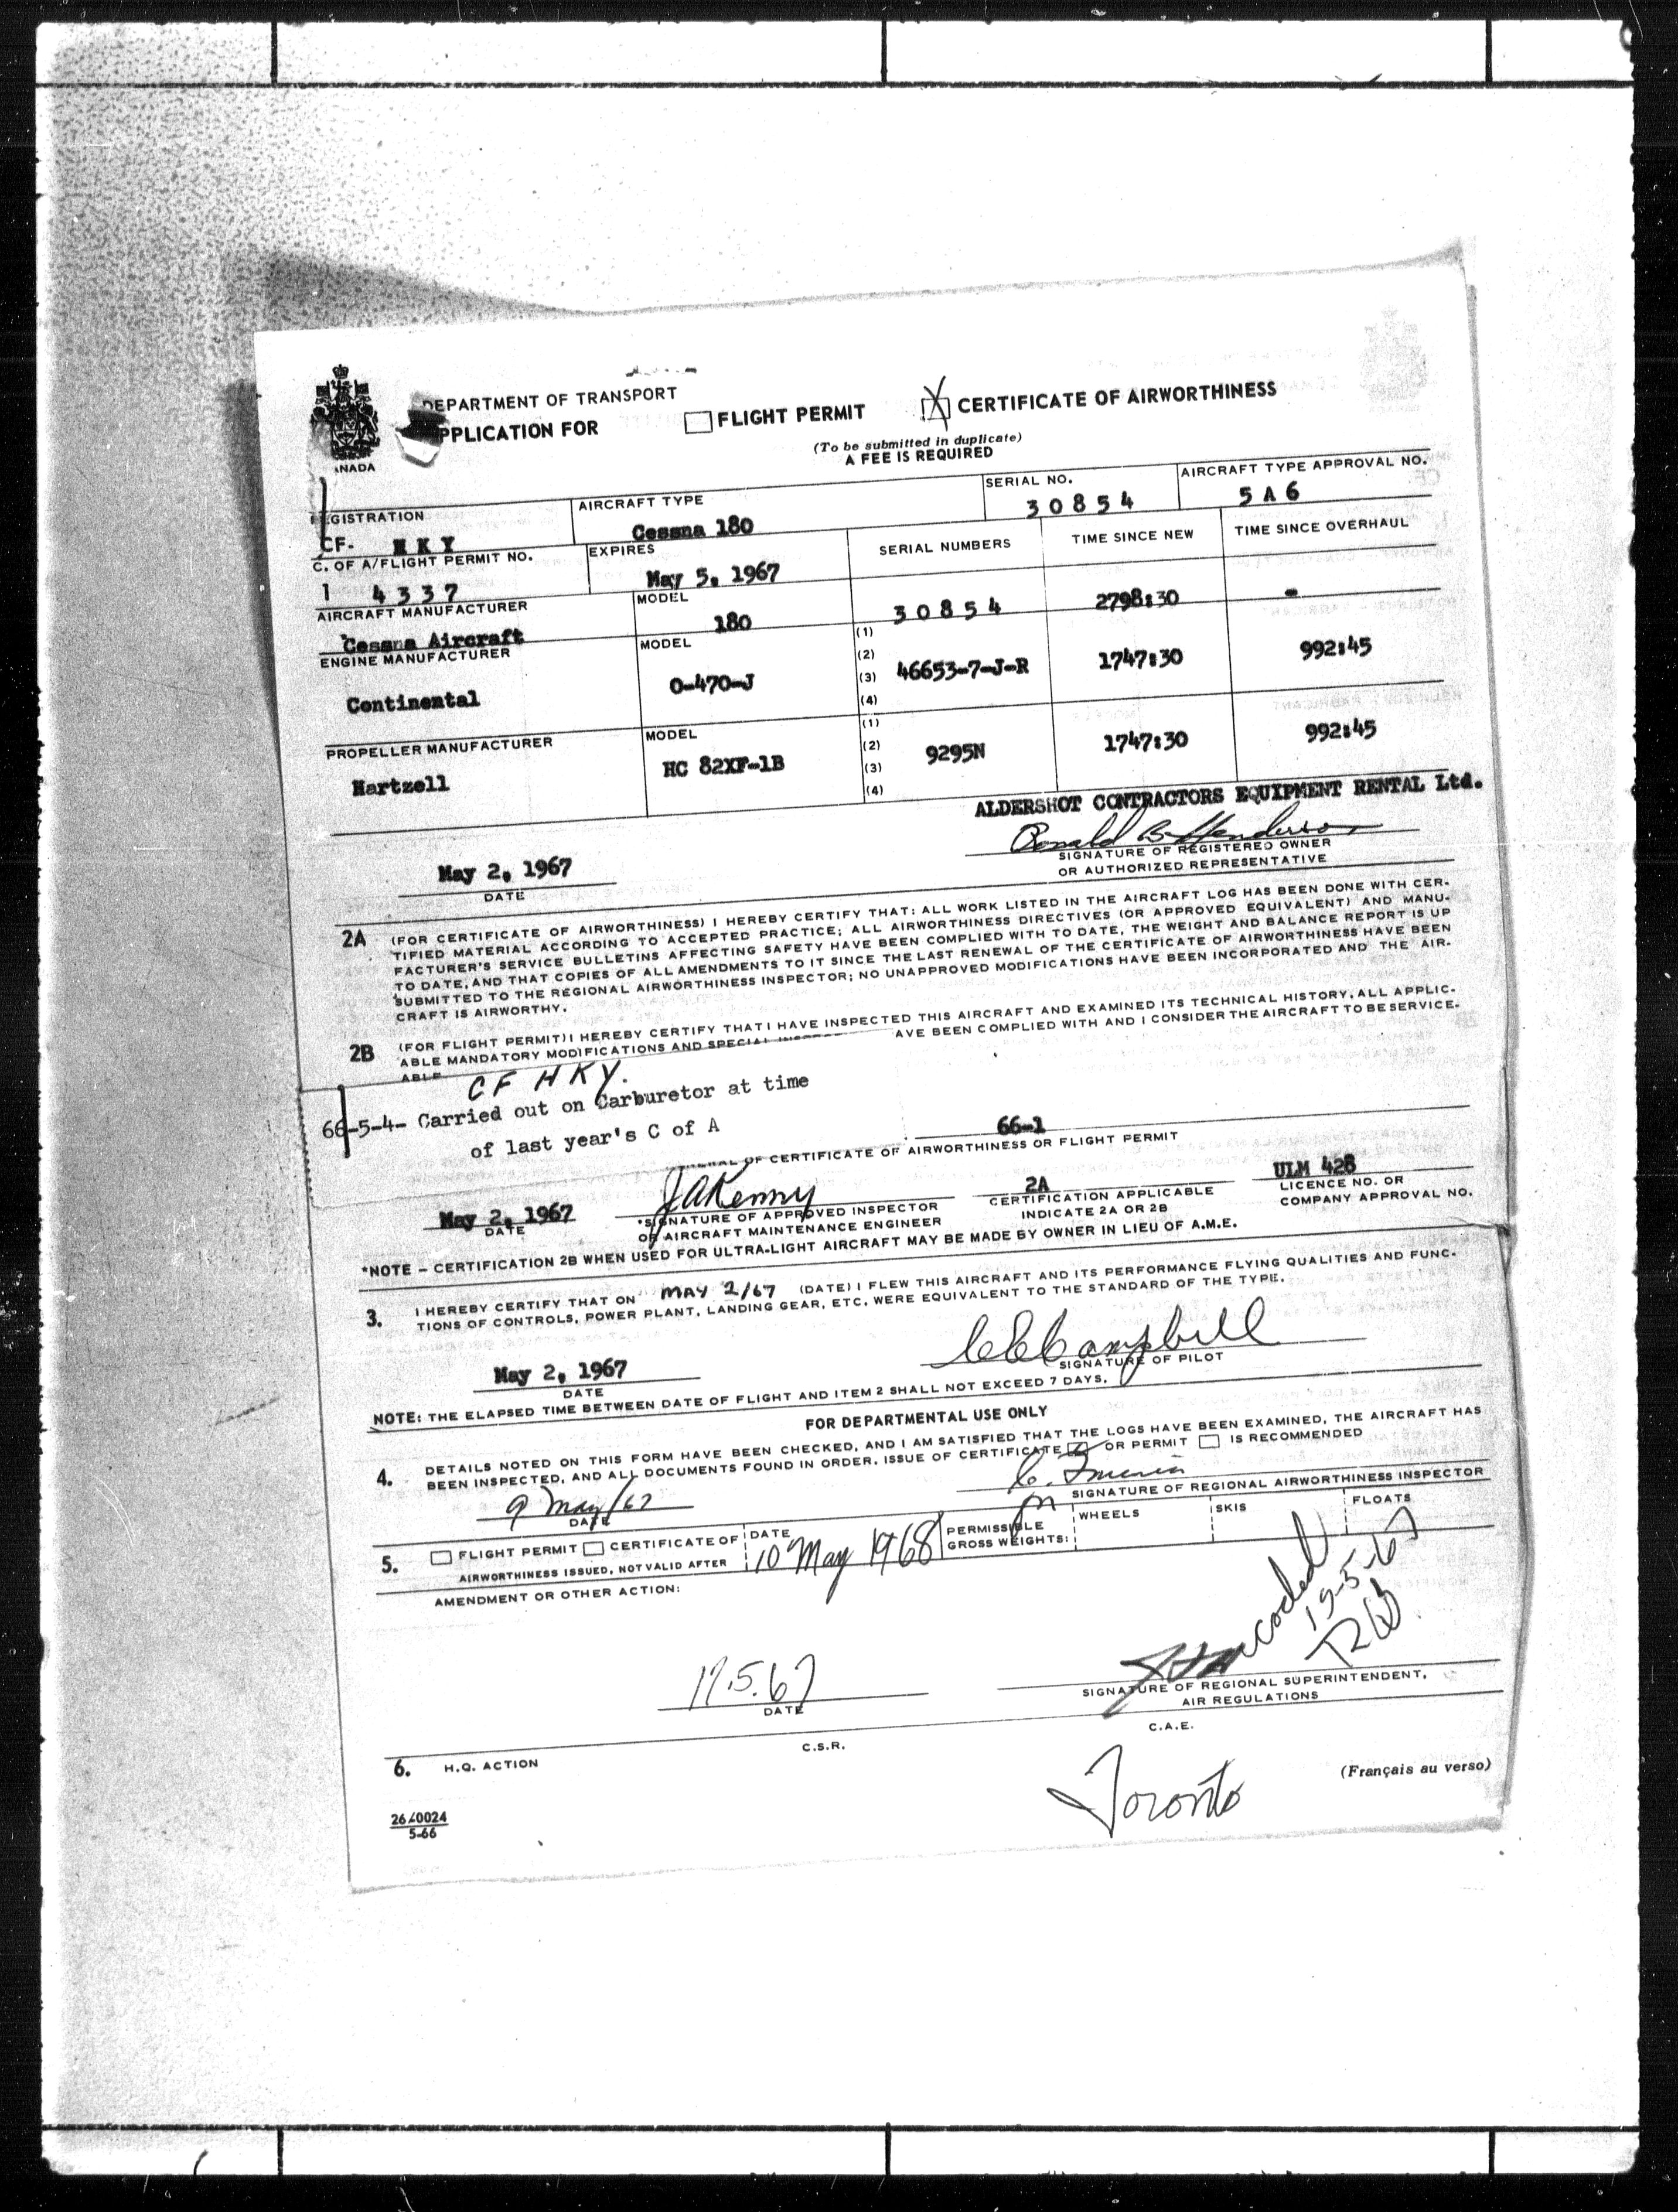 DEPARTMENT OF TRANSPORT
PPLICATION FOR FLIGHT PERMIT CERTIFICATE OF AIRWORTHINESS
(To be submitted in duplicate)
A FEE IS REQUIRED
ANADA
EGISTRATION AIRCRAFT TYPE SERIAL NO. AIRCRAFT TYPE APPROVAL NO.
CF- HKY Cessna 180 30854 5A6
C. OF A/FLIGHT PERMIT NO. EXPIRES SERIAL NUMBERS TIME SINCE NEW TIME SINCE OVERHAUL
1 4337 May 5, 1967
AIRCRAFT MANUFACTURER MODEL
Cessna Aircraft 180 30854 2798:30 -
ENGINE MANUFACTURER MODEL (1)
(2)
Continental O-470-J (3) 46653-7-J-R 1747:30 992:45
(4)
PROPELLER MANUFACTURER MODEL (1)
(2)
Hartzell HC 82XF-1B (3) 9295N 1747:30 992:45
(4)
ALDERSHOT CONTRACTORS EQUIPMENT RENTAL Ltd.
Ronald B Henderson
May 2, 1967 SIGNATURE OF REGISTERED OWNER
DATE OR AUTHORIZED REPRESENTATIVE
2A (FOR CERTIFICATE OF AIRWORTHINESS) I HEREBY CERTIFY THAT: ALL WORK LISTED IN THE AIRCRAFT LOG HAS BEEN DONE WITH CER-
TIFIED MATERIAL ACCORDING TO ACCEPTED PRACTICE; ALL AIRWORTHINESS DIRECTIVES (OR APPROVED EQUIVALENT) AND MANU-
FACTURER'S SERVICE BULLETINS AFFECTING SAFETY HAVE BEEN COMPLIED WITH TO DATE, THE WEIGHT AND BALANCE REPORT IS UP
TO DATE, AND THAT COPIES OF ALL AMENDMENTS TO IT SINCE THE LAST RENEWAL OF THE CERTIFICATE OF AIRWORTHINESS HAVE BEEN
SUBMITTED TO THE REGIONAL AIRWORTHINESS INSPECTOR; NO UNAPPROVED MODIFICATIONS HAVE BEEN INCORPORATED AND THE AIR-
CRAFT IS AIRWORTHY.
2B (FOR FLIGHT PERMIT) I HEREBY CERTIFY THAT I HAVE INSPECTED THIS AIRCRAFT AND EXAMINED ITS TECHNICAL HISTORY, ALL APPLIC-
ABLE MANDATORY MODIFICATIONS AND SPECIAL AVE BEEN COMPLIED WITH AND I CONSIDER THE AIRCRAFT TO BE SERVICE-
ABLE
CF HKY.
66-5-4- Carried out on Carburetor at time
of last year's C of A 66-1
OF CERTIFICATE OF AIRWORTHINESS OR FLIGHT PERMIT
May 2, 1967 JAKenny 2A ULM 428
DATE *SIGNATURE OF APPROVED INSPECTOR CERTIFICATION APPLICABLE LICENCE NO. OR
OR AIRCRAFT MAINTENANCE ENGINEER INDICATE 2A OR 2B COMPANY APPROVAL NO.
*NOTE - CERTIFICATION 2B WHEN USED FOR ULTRA-LIGHT AIRCRAFT MAY BE MADE BY OWNER IN LIEU OF A.M.E.
3. I HEREBY CERTIFY THAT ON MAY 2/67 (DATE) I FLEW THIS AIRCRAFT AND ITS PERFORMANCE FLYING QUALITIES AND FUNC-
TIONS OF CONTROLS, POWER PLANT, LANDING GEAR, ETC. WERE EQUIVALENT TO THE STANDARD OF THE TYPE.
May 2, 1967 Campbell
DATE SIGNATURE OF PILOT
NOTE: THE ELAPSED TIME BETWEEN DATE OF FLIGHT AND ITEM 2 SHALL NOT EXCEED 7 DAYS.
FOR DEPARTMENTAL USE ONLY
4. DETAILS NOTED ON THIS FORM HAVE BEEN CHECKED, AND I AM SATISFIED THAT THE LOGS HAVE BEEN EXAMINED, THE AIRCRAFT HAS
BEEN INSPECTED, AND ALL DOCUMENTS FOUND IN ORDER. ISSUE OF CERTIFICATE OR PERMIT IS RECOMMENDED
9 May/67
DATE SIGNATURE OF REGIONAL AIRWORTHINESS INSPECTOR
5. FLIGHT PERMIT CERTIFICATE OF DATE PERMISSIBLE WHEELS SKIS FLOATS
AIRWORTHINESS ISSUED, NOT VALID AFTER 10 May 1968 GROSS WEIGHTS:
AMENDMENT OR OTHER ACTION:
coded
19-5-67
17.5.67
DATE SIGNATURE OF REGIONAL SUPERINTENDENT,
AIR REGULATIONS
6. H.Q. ACTION C.S.R. C.A.E.
Toronto (Français au verso)
26-0024
5-66